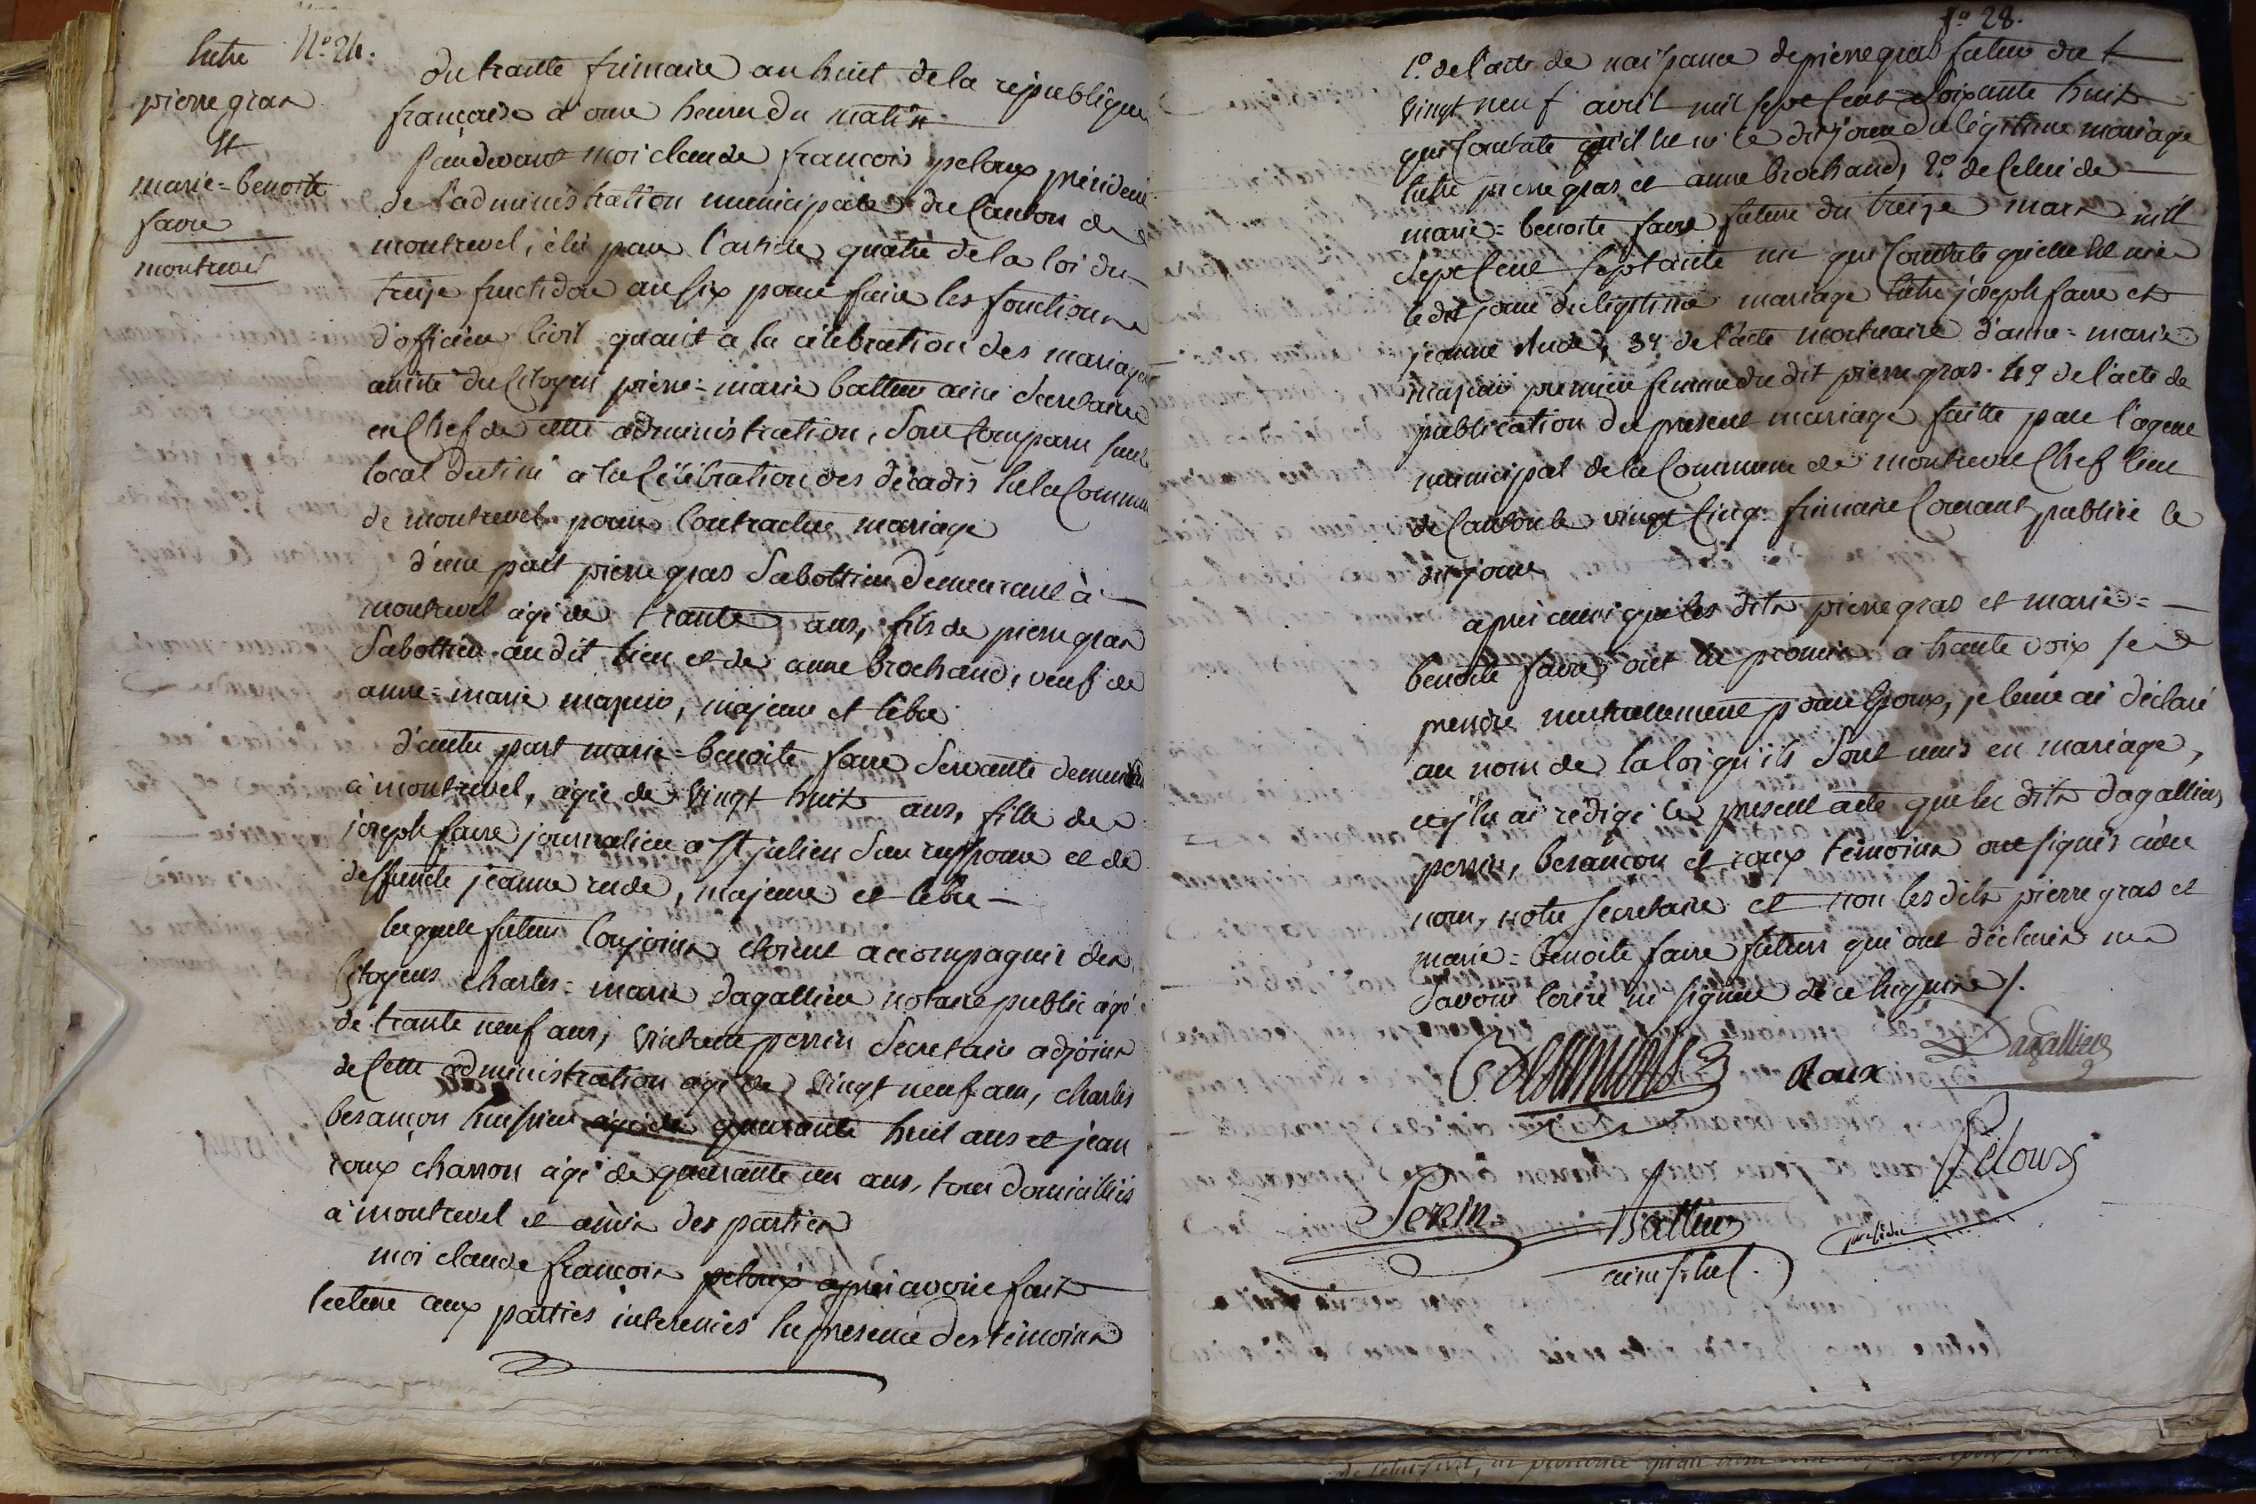 Entre N.° 24.
pierre gras
et
marie=benoite
favre
montrevel
du trante frimaire an huit de la république
françaide à onze heures du matin
Pardevant moi claude françois peloux président
de l'administration municipale du Canton de
montrevel, élu pour l'article quatre de la loi du
treize fructidor an six pour faire les fonctions
d'officier Civil quant à la célébration des mariages
assisté du Citoyen pierre=marie battur ainé Secretaire
en Chef de cette administration, Sont Comparu sur le
local destiné à la Célébration des décadis En la Commune
de montrevel pour Contracter mariage
d'une part pierre gras Sabottier demeurant à
montrevel agé de trante ans, fils de pierre gras
Sabottier au dit lieu et de anne brochand, veuf de
anne=marie majeur et libre
d'autre part marie=benoite favre Servante demeurant
à montrevel, agée de vingt huit ans, fille de
joseph favre journalier à St julien Sur reyssouze et de
deffunte jeanne rude, majeure et libre —
lesquels futurs Conjoins étoient accompagnés des
Citoyens charles=marie dagallier notaire public agé
de trante neuf ans, perrin Secretaire adjoint
de Cette administration agé de vingt neuf ans, charles
besançon huissier agé de quarante huit ans et jean
roux charron agé de quarante un ans, tous domiciliés
à montrevel et amis des parties
moi claude françois peloux après avoir fait
lecture aux parties interessées En présence des témoins
f.° 28.
1.° de l'acte de naissance de pierre gras futur du
vingt neuf avril mil sept Cent Soixante huit
qui Constate qu'il Est né le dit jour du légitime mariage
Entre pierre gras et anne brochand, 2.° de Celui de
marie=benoite favre future du treize mars mil
Sept Cent Septante un qui Constate qu'elle Est née
le dit jour du légitime mariage Entre joseph favre et
jeanne Rude, 3.° de l'acte mortuaire d'anne=marie
première femme du dit pierre gras. 4.° de l'acte de
publication du présent mariage faitte par l'agent
municipal de la Commune de montrevel Chef lieu
de Canton le vingt Cinq frimaire Courant publiée le
dit jour
après aussi que les dits pierre gras et marie=
benoite favre ont Eu promis à haute voix se
prendre mutuelement pour Epoux, je leur ai déclaré
au nom de la loi qu'ils Sont unis en mariage,
et j'En ai rédigé le présent acte que les dits dagallier
perrin, besançon et roux témoins ont signés avec
nous, notre Secretaire et non les dits pierre gras et
marie=benoite favre futurs qui ont déclarés ne
Savoir Ecrire ni signer de ce Enquis /.
Dagallier
Roux
Peloux
président
Perrin
Battur
ainé S.re En Chef.